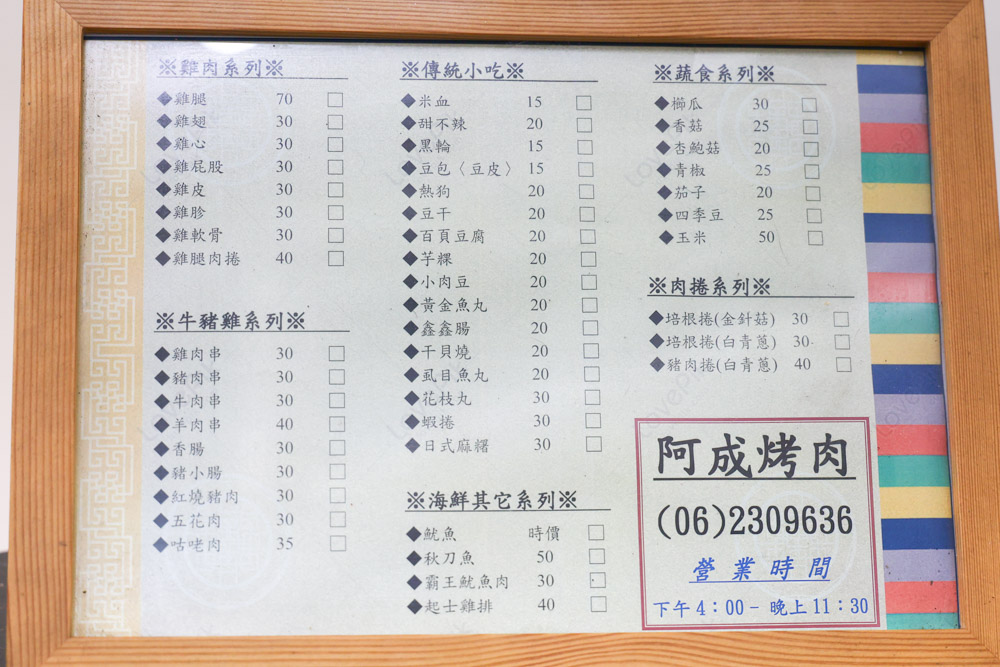 ※雞肉系列※
◆雞腿 70 □
◆雞翅 30 □
◆雞心 30 □
◆雞屁股 30 □
◆雞皮 30 □
◆雞胗 30 □
◆雞軟骨 30 □
◆雞腿肉捲 40 □
※牛豬雞系列※
◆雞肉串 30 □
◆豬肉串 30 □
◆牛肉串 30 □
◆羊肉串 40 □
◆香腸 30 □
◆豬小腸 30 □
◆紅燒豬肉 30 □
◆五花肉 30 □
◆咕咾肉 35 □
※傳統小吃※
◆米血 15 □
◆甜不辣 20 □
◆黑輪 15 □
◆豆包〈豆皮〉 15 □
◆熱狗 20 □
◆豆干 20 □
◆百頁豆腐 20 □
◆芋粿 20 □
◆小肉豆 20 □
◆黃金魚丸 20 □
◆鑫鑫腸 20 □
◆干貝燒 20 □
◆虱目魚丸 20 □
◆花枝丸 30 □
◆蝦捲 30 □
◆日式麻糬 30 □
※海鮮其它系列※
◆魷魚 時價 □
◆秋刀魚 50 □
◆霸王魷魚肉 30 □
◆起士雞排 40 □
※蔬食系列※
◆櫛瓜 30 □
◆香菇 25 □
◆杏鮑菇 20 □
◆青椒 25 □
◆茄子 20 □
◆四季豆 25 □
◆玉米 50 □
※肉捲系列※
◆培根捲(金針菇) 30 □
◆培根捲(白青蔥) 30 □
◆豬肉捲(白青蔥) 40 □
阿成烤肉
(06)2309636
營業時間
下午4：00－晚上11：30